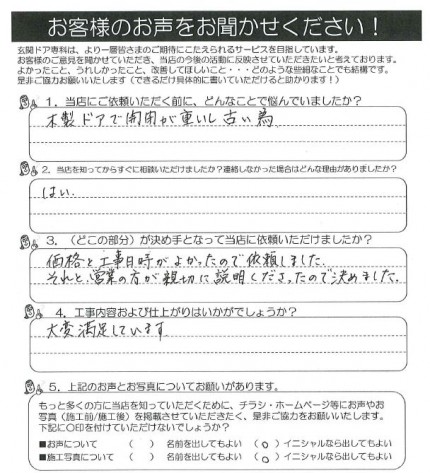 お客様のお声をお聞かせください！
玄関ドア専科は、より一層皆さまのご期待にこたえられるサービスを目指しています。
お客様のご意見を聞かせていただき、当店の今後の活動に反映させていただきたいと考えております。
よかったこと、うれしかったこと、改善してほしいこと・・・どのような些細なことでも結構です。
是非ご協力お願いいたします（できるだけ具体的に書いていただけると助かります！）
1．当店にご依頼いただく前に、どんなことで悩んでいましたか？
木製ドアで開閉が重いし古い為
2．当店を知ってからすぐに相談いただけましたか？連絡しなかった場合はどんな理由がありましたか？
はい。
3．（どこの部分）が決め手となって当店に依頼いただけましたか？
価格と工事日時がよかったので依頼しました。
それと、営業の方が親切に説明くださったので決めました。
4．工事内容および仕上がりはいかがでしょうか？
大変満足しています
5．上記のお声とお写真についてお願いがあります。
もっと多くの方に当店を知っていただくために、チラシ・ホームページ等にお声やお
写真（施工前/施工後）を掲載させていただきたく、是非ご協力をお願いいたします。
下記に○印を付けていただけないでしょうか？
■お声について （ ） 名前を出してもよい （○）イニシャルなら出してもよい
■施工写真について （ ） 名前を出してもよい （○）イニシャルなら出してもよい